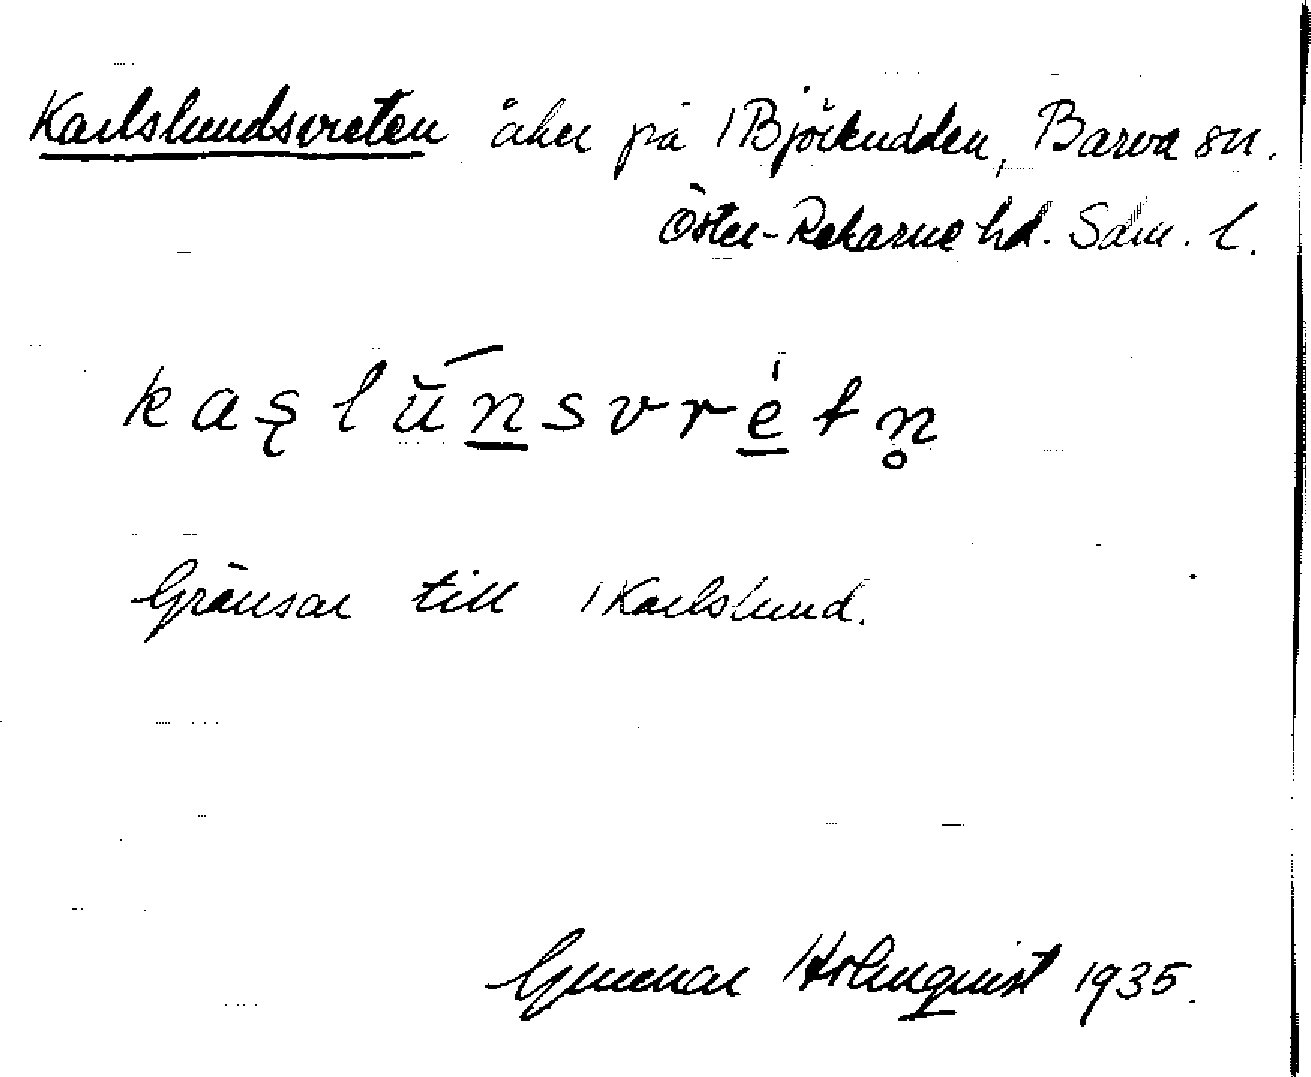 Karlslundsvreten åker på /Björkudden, Barva sn.
Öster-Rekarne hd. Söm. l.
kaʂlún̲svrė̲tn̥
Gränsar till /Karlslund.
Gunnar Holmquist 1935.